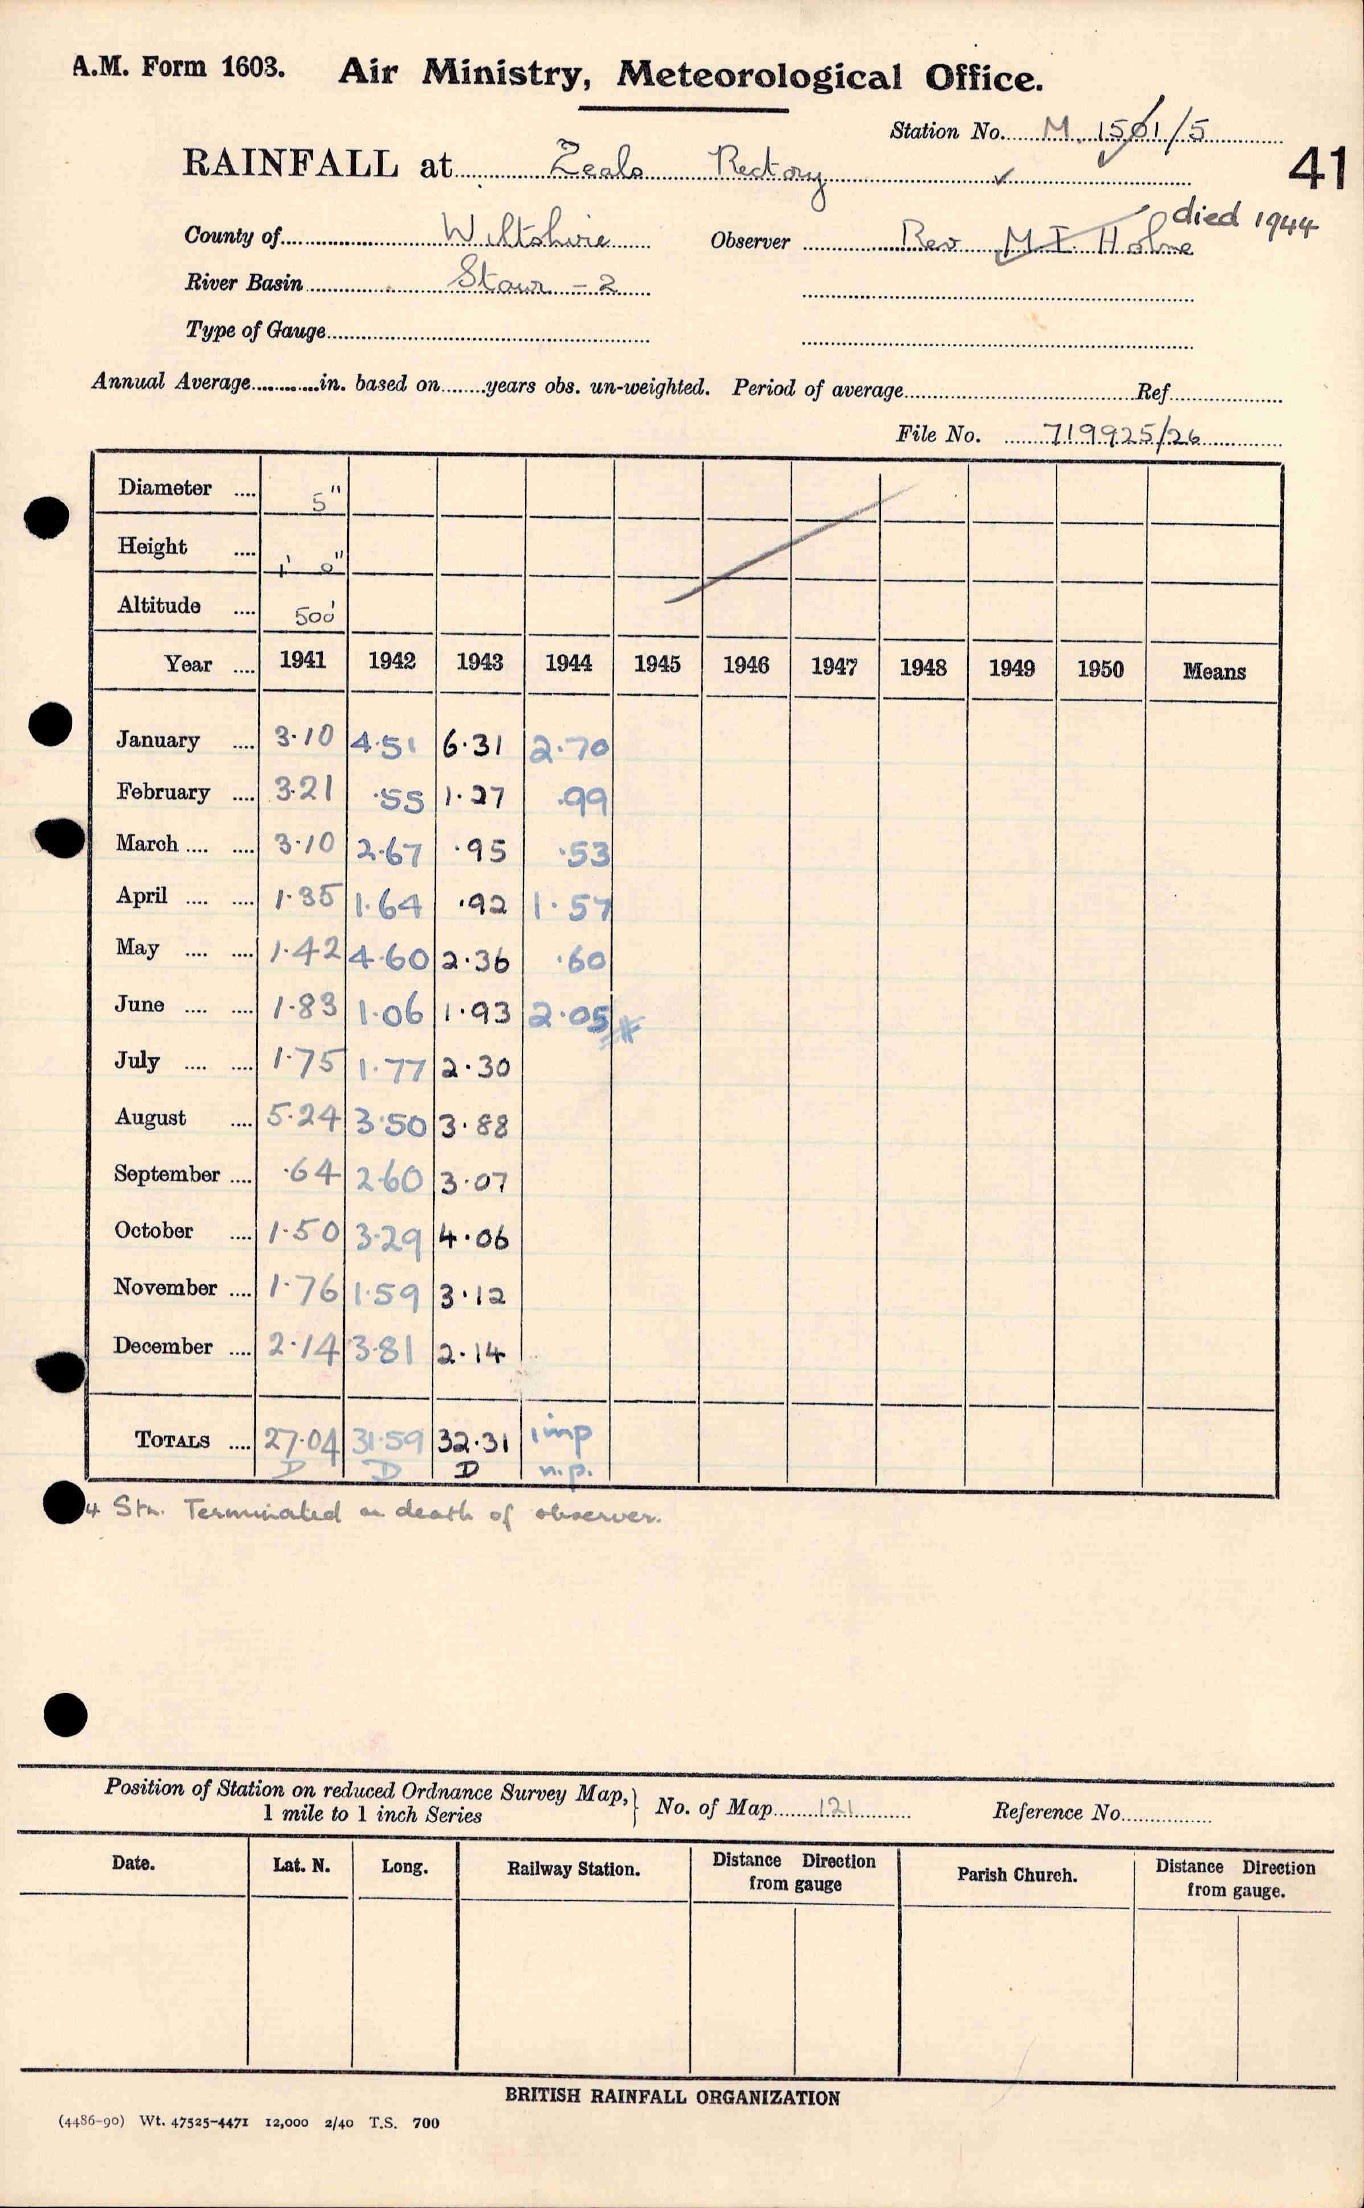 A.M. Form 1603. Air Ministry, Meteorological Office.
Station No. M. 1501/5
41
RAINFALL at Zeals Rectory
died 1944
County of Wiltshire Observer Rev M I Holme
River Basin Stour - 2
Type of Gauge
Annual Average in. based on years obs. un-weighted. Period of average Ref
File No. 719925/26
Diameter 5"
Height 1' 0"
Altitude 500'
Year 1941 1942 1943 1944 1945 1946 1947 1948 1949 1950 Means
January 3.10 4.51 6.31 2.70
February 3.21 .55 1.27 .99
March 3.10 2.67 .95 .53
April 1.35 1.64 .92 1.57
May 1.42 4.60 2.36 .60
June 1.83 1.06 1.93 2.05 #
July 1.75 1.77 2.30
August 5.24 3.50 3.88
September .64 2.60 3.07
October 1.50 3.29 4.06
November 1.76 1.59 3.12
December 2.14 3.81 2.14
TOTALS 27.04 31.59 32.31 imp
D D D n.p.
Stn. Terminated on death of observer.
Position of Station on reduced Ordnance Survey Map, 1 mile to 1 inch Series } No. of Map 121 Reference No.
Date. Lat. N. Long. Railway Station. Distance Direction from gauge Parish Church. Distance Direction from gauge.
BRITISH RAINFALL ORGANIZATION
(4486-90) Wt. 47525-4471 12,000 2/40 T.S. 700